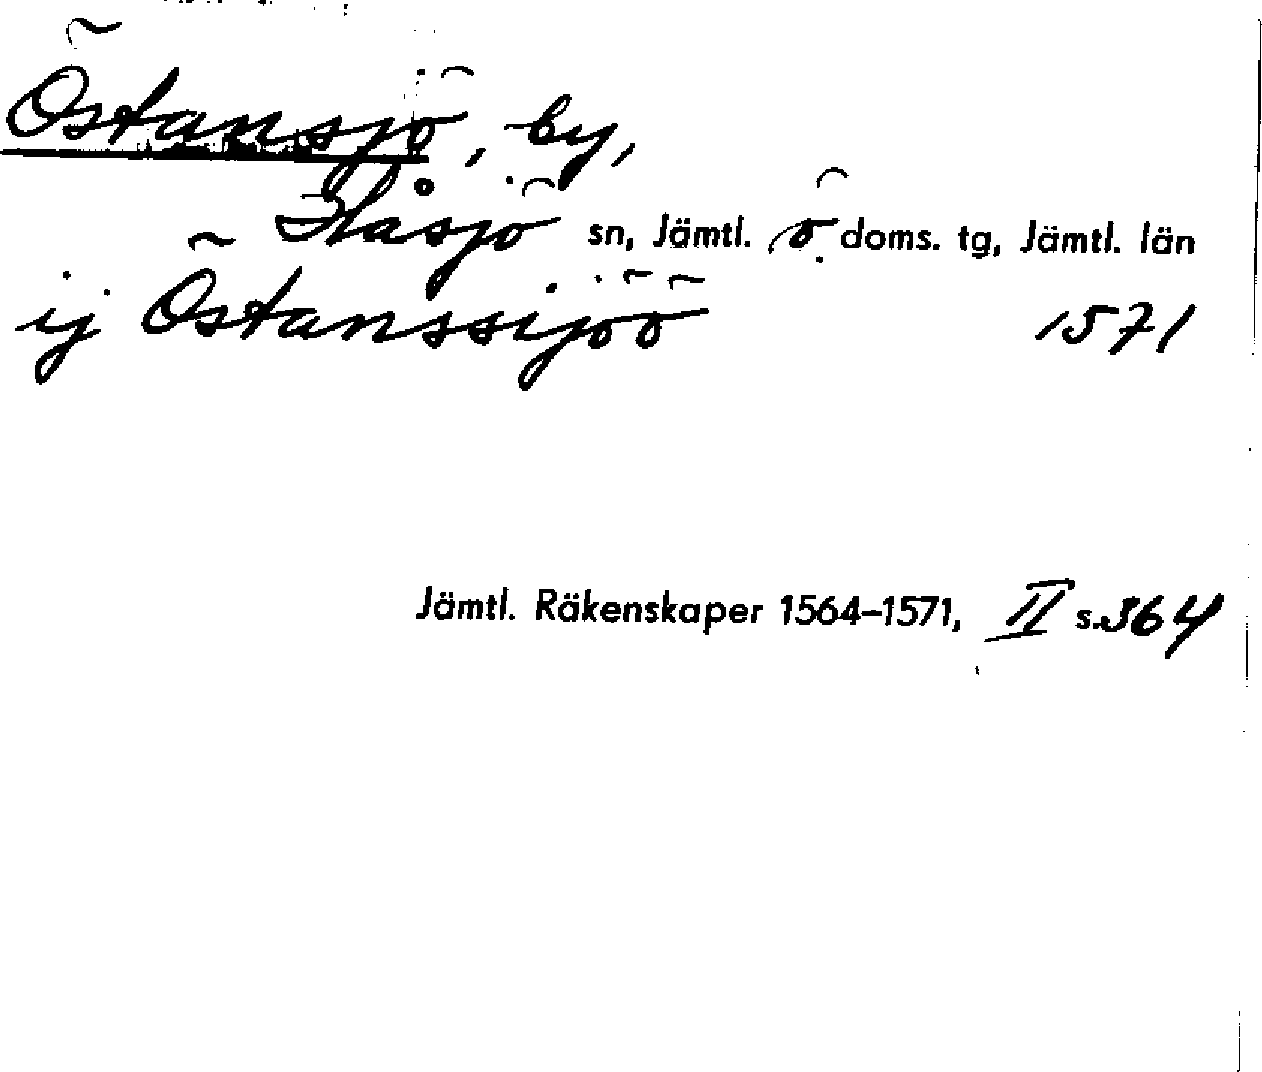 Östansjö, by,
Håsjö sn, Jämtl. ö. doms. tg, Jämtl. län
ij Östanssijöö 1571
Jämtl. Räkenskaper 1564–1571, II s. 364